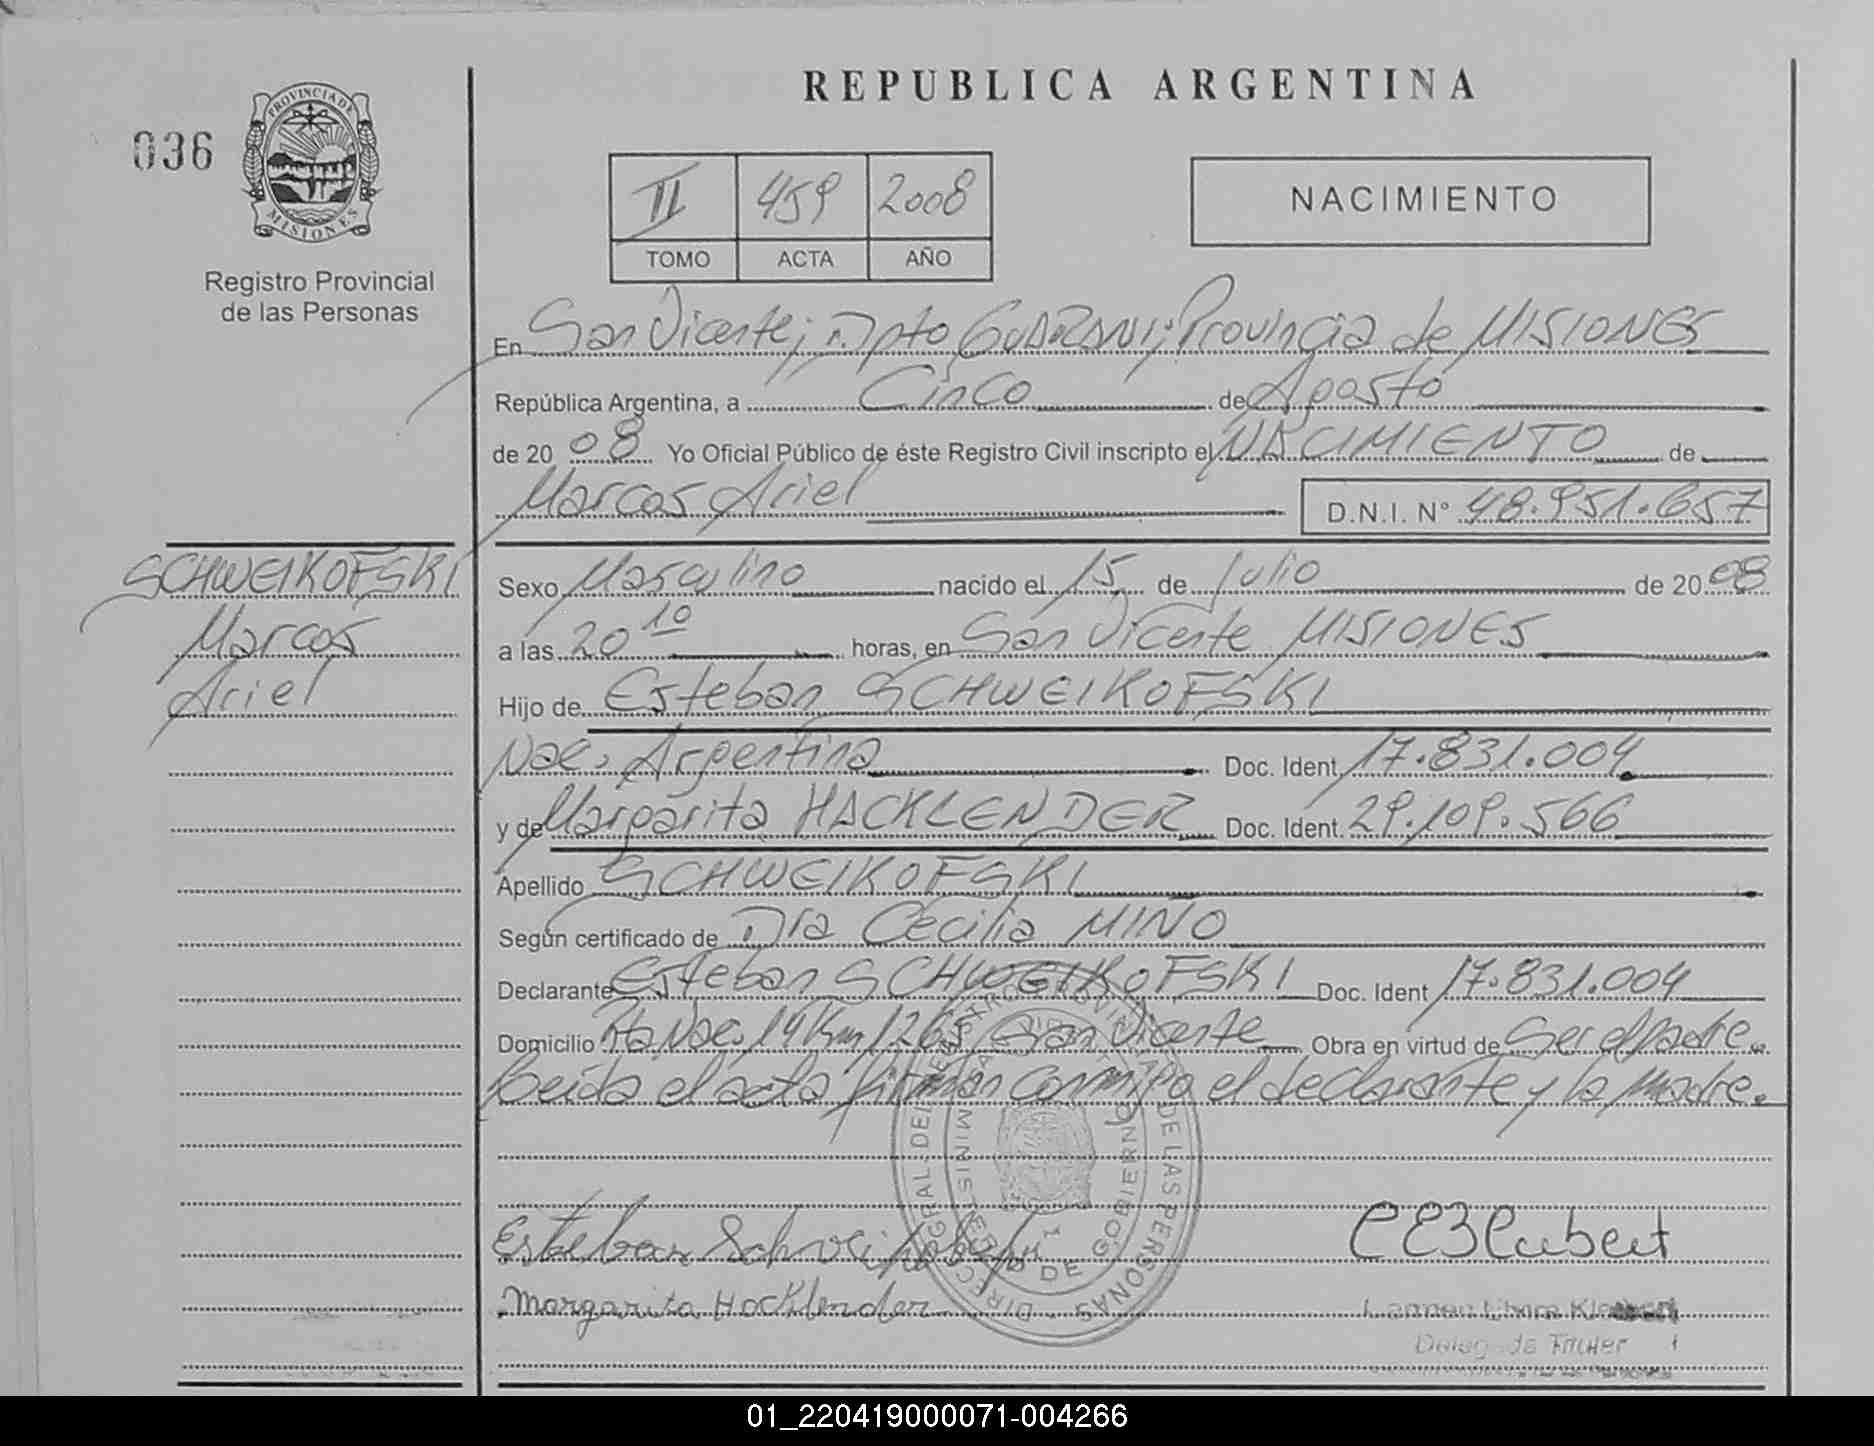 REPUBLICA ARGENTINA
036
PROVINCIA DE
MISIONES
Registro Provincial
de las Personas
II 459 2008
TOMO ACTA AÑO
NACIMIENTO
En San Vicente; Dpto GUARANI; Provincia de MISIONES
República Argentina, a Cinco de Agosto
de 20 08 Yo Oficial Público de éste Registro Civil inscripto el NACIMIENTO de
Marcos Ariel D.N.I. N° 48.951.657
SCHWEIKOFSKI
Marcos
Ariel
Sexo Masculino nacido el 15 de Julio de 20 08
a las 20 10 horas, en San Vicente MISIONES
Hijo de Esteban SCHWEIKOFSKI
Nac. Argentina Doc. Ident. 17.831.004
y de Margarita HACKLENDER Doc. Ident. 29.109.566
Apellido SCHWEIKOFSKI
Según certificado de Dra Cecilia MIÑO
Declarante Esteban SCHWEIKOFSKI Doc. Ident 17.831.004
Domicilio Rta Nac. 14 Km 1265 San Vicente Obra en virtud de Ser el padre.
Leida el acta firman conmigo el declarante y la madre.
DE LAS PERSONAS
DE GOBIERNO
Esteban
Margarita Hocklender
Carmen